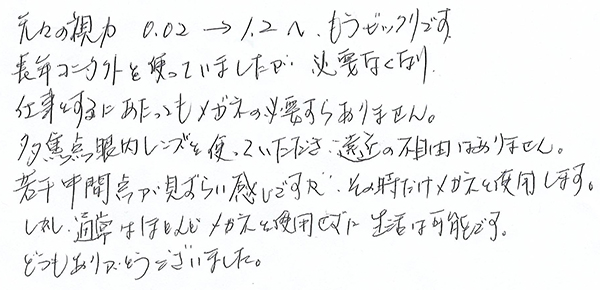 元々の視力 0.02 → 1.2へ、もうビックリです。
長年コンタクトを使っていましたが 必要なくなり、
仕事をするにあたってもメガネの必要すらありません。
多焦点眼内レンズを使っていただき、遠近の不自由はありません。
若干中間点が見ずらい感じですが、その時だけメガネを使用します。
しかし、通常はほとんどメガネを使用せずに生活は可能です。
どうもありがとうございました。